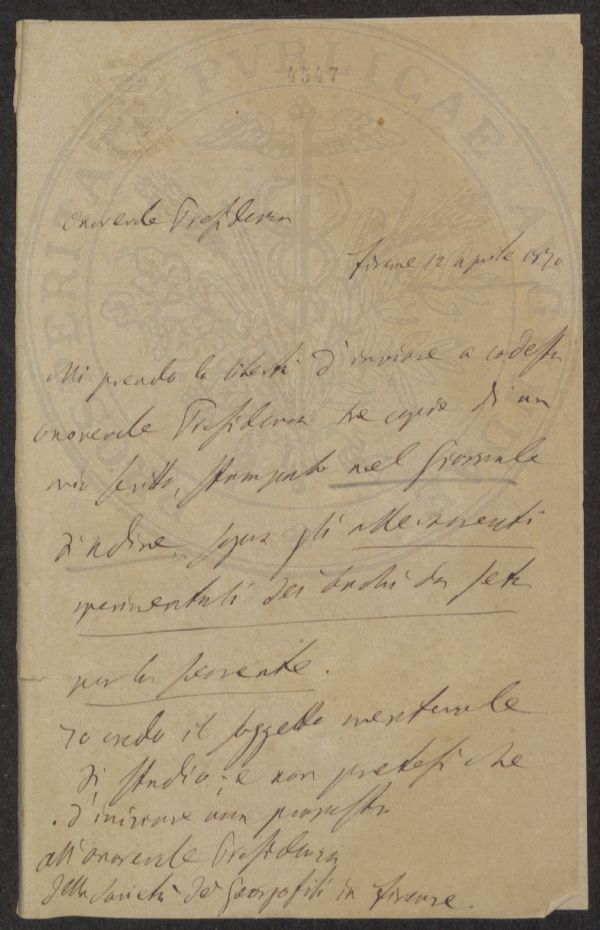 4547
Onorevole Presidenza
Firenze 12 Aprile 1870
Mi prendo la libertà d'inviare a codesta
onorevole Presidenza tre copie di un
mio scritto, stampato nel Giornale
di Udine, sopra gli allevamenti
sperimentali dei bachi da seta
per la semente.
Io credo il soggetto meritevole
di studio; e non pretesi che
d'iniziare una proposta
All'onorevole Presidenza
della Società dei Georgofili in Firenze.